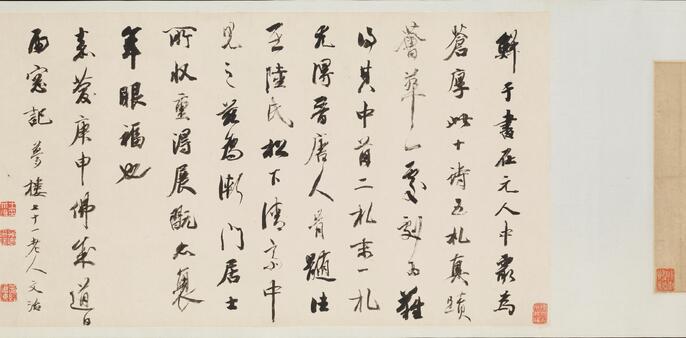 鮮于書在元人中最為
蒼厚此十詩五札真蹟
薈萃一處為難
得其中首二札末一札
尤得晉唐人骨髓往
在陸氏松下清齋中
見之茲為漸門居士
所收重得展翫亦衰
年眼福也
嘉慶庚申佛成道日
雨窗記 夢樓七十一老人文治